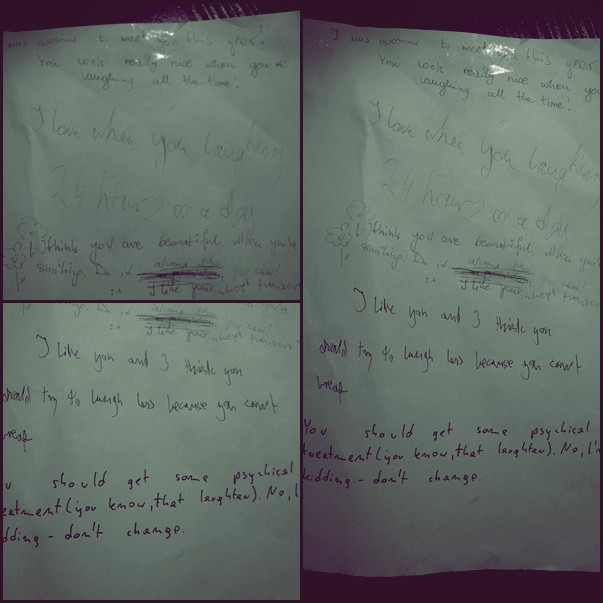 was awesome to meet you this year!
You look really nice when you're
laughing all the time!
I love when you laughing
24 hours on a day
I think you are beautiful when you're
smiling. Do it always you can!
:+ I like your
I like you and I think you
should try to laugh less because you can't
u should get some psychical
eatment (you know, that laughter). No, I
dding - don't change.
I was awesome to meet you this year
You look really nice when you're
laughing all the time!
I love when you laughing
24 hours on a day
I think you are beautiful when you're
smiling. Do it you can!
I like your
I like you and I think you
should try to laugh less because you can't
You should get some psychical
treatment (you know, that laughter). No, I'm
kidding - don't change.